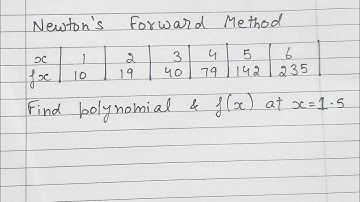 Newton's Forward Method
x | 1 | 2 | 3 | 4 | 5 | 6
fx | 10 | 19 | 40 | 79 | 142 | 235
Find polynomial & f(x) at x=1.5